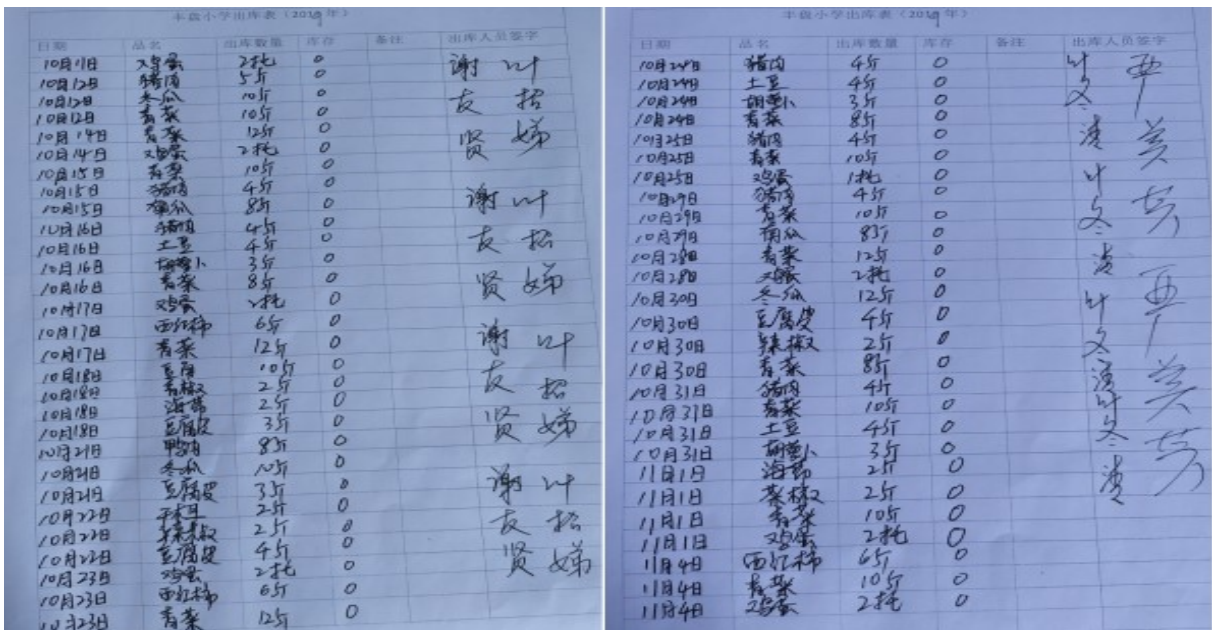 丰盘小学出库表（2019年）
日期 品名 出库数量 库存 备注 出库人员签字
10月11日 鸡蛋 2托 0
10月12日 猪肉 5斤 0
10月12日 冬瓜 10斤 0
10月12日 青菜 10斤 0
10月14日 青菜 12斤 0
10月14日 鸡蛋 2托 0
10月15日 青菜 10斤 0
10月15日 猪肉 4斤 0
10月15日 瓜 8斤 0
10月16日 猪肉 4斤 0
10月16日 土豆 4斤 0
10月16日 胡萝卜 3斤 0
10月16日 青菜 8斤 0
10月17日 鸡蛋 2托 0
10月17日 西红柿 6斤 0
10月17日 青菜 12斤 0
10月18日 豆腐 10斤 0
10月18日 青椒 2斤 0
10月18日 海带 2斤 0
10月18日 豆腐皮 3斤 0
10月21日 鸭肉 8斤 0
10月21日 冬瓜 10斤 0
10月21日 豆腐皮 3斤 0
10月22日 2斤 0
10月22日 辣椒 2斤 0
10月22日 豆腐皮 4斤 0
10月23日 鸡蛋 2托 0
10月23日 西红柿 6斤 0
10月23日 青菜 12斤 0
谢友贤 叶招娣
谢友贤 叶招娣
谢友贤 叶招娣
谢友贤 叶招娣
丰盘小学出库表（2019年）
日期 品名 出库数量 库存 备注 出库人员签字
10月24日 猪肉 4斤 0
10月24日 土豆 4斤 0
10月24日 胡萝卜 3斤 0
10月24日 青菜 8斤 0
10月25日 猪肉 4斤 0
10月25日 青菜 10斤 0
10月25日 鸡蛋 1托 0
10月29日 猪肉 4斤 0
10月29日 青菜 10斤 0
10月29日 南瓜 8斤 0
10月28日 青菜 12斤 0
10月28日 鸡蛋 2托 0
10月30日 冬瓜 12斤 0
10月30日 豆腐皮 4斤 0
10月30日 辣椒 2斤 0
10月30日 青菜 8斤 0
10月31日 猪肉 4斤 0
10月31日 青菜 10斤 0
10月31日 土豆 4斤 0
10月31日 胡萝卜 3斤 0
11月1日 海带 2斤 0
11月1日 菜椒 2斤 0
11月1日 青菜 10斤 0
11月1日 鸡蛋 2托 0
11月4日 西红柿 6斤 0
11月4日 青菜 10斤 0
11月4日 鸡蛋 2托 0
叶冬
叶冬
叶冬
叶冬